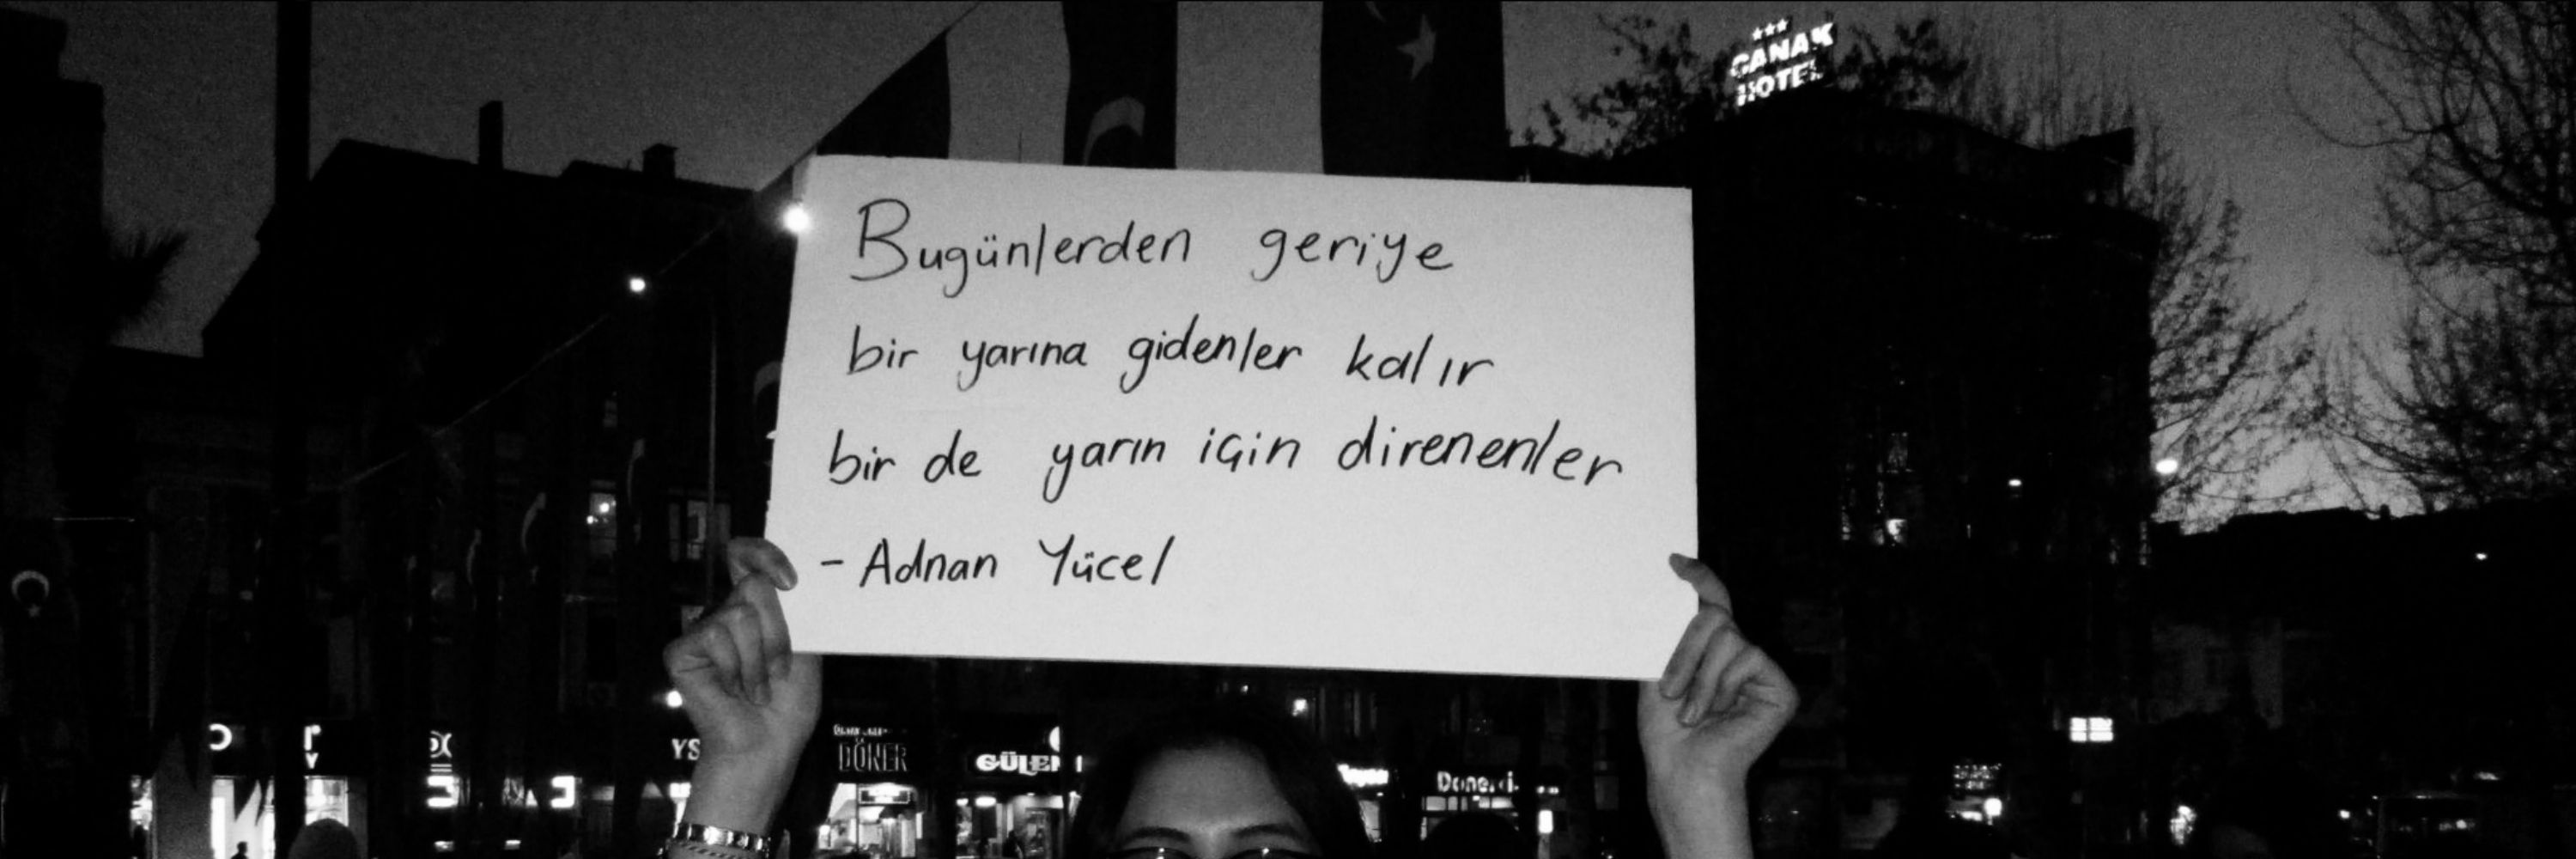 ★★★
ÇANAK
HOTEL
Bugünlerden geriye
bir yarına gidenler kalır
bir de yarın için direnenler
- Adnan Yücel
YS
DÖNER
GÜLEN
Dönerci